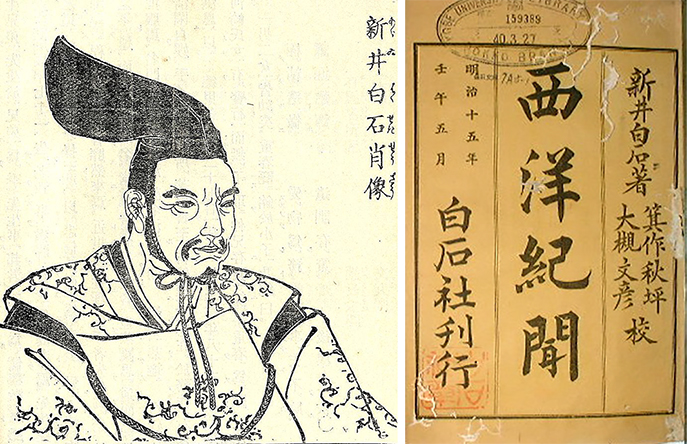 新井白石肖像
KOBE UNIVERSITY LIBRARY
159389
40.3.27
新井白石著
箕作秋坪
大槻文彦 校
西洋紀聞
明治十五年
壬午五月
白石社刊行